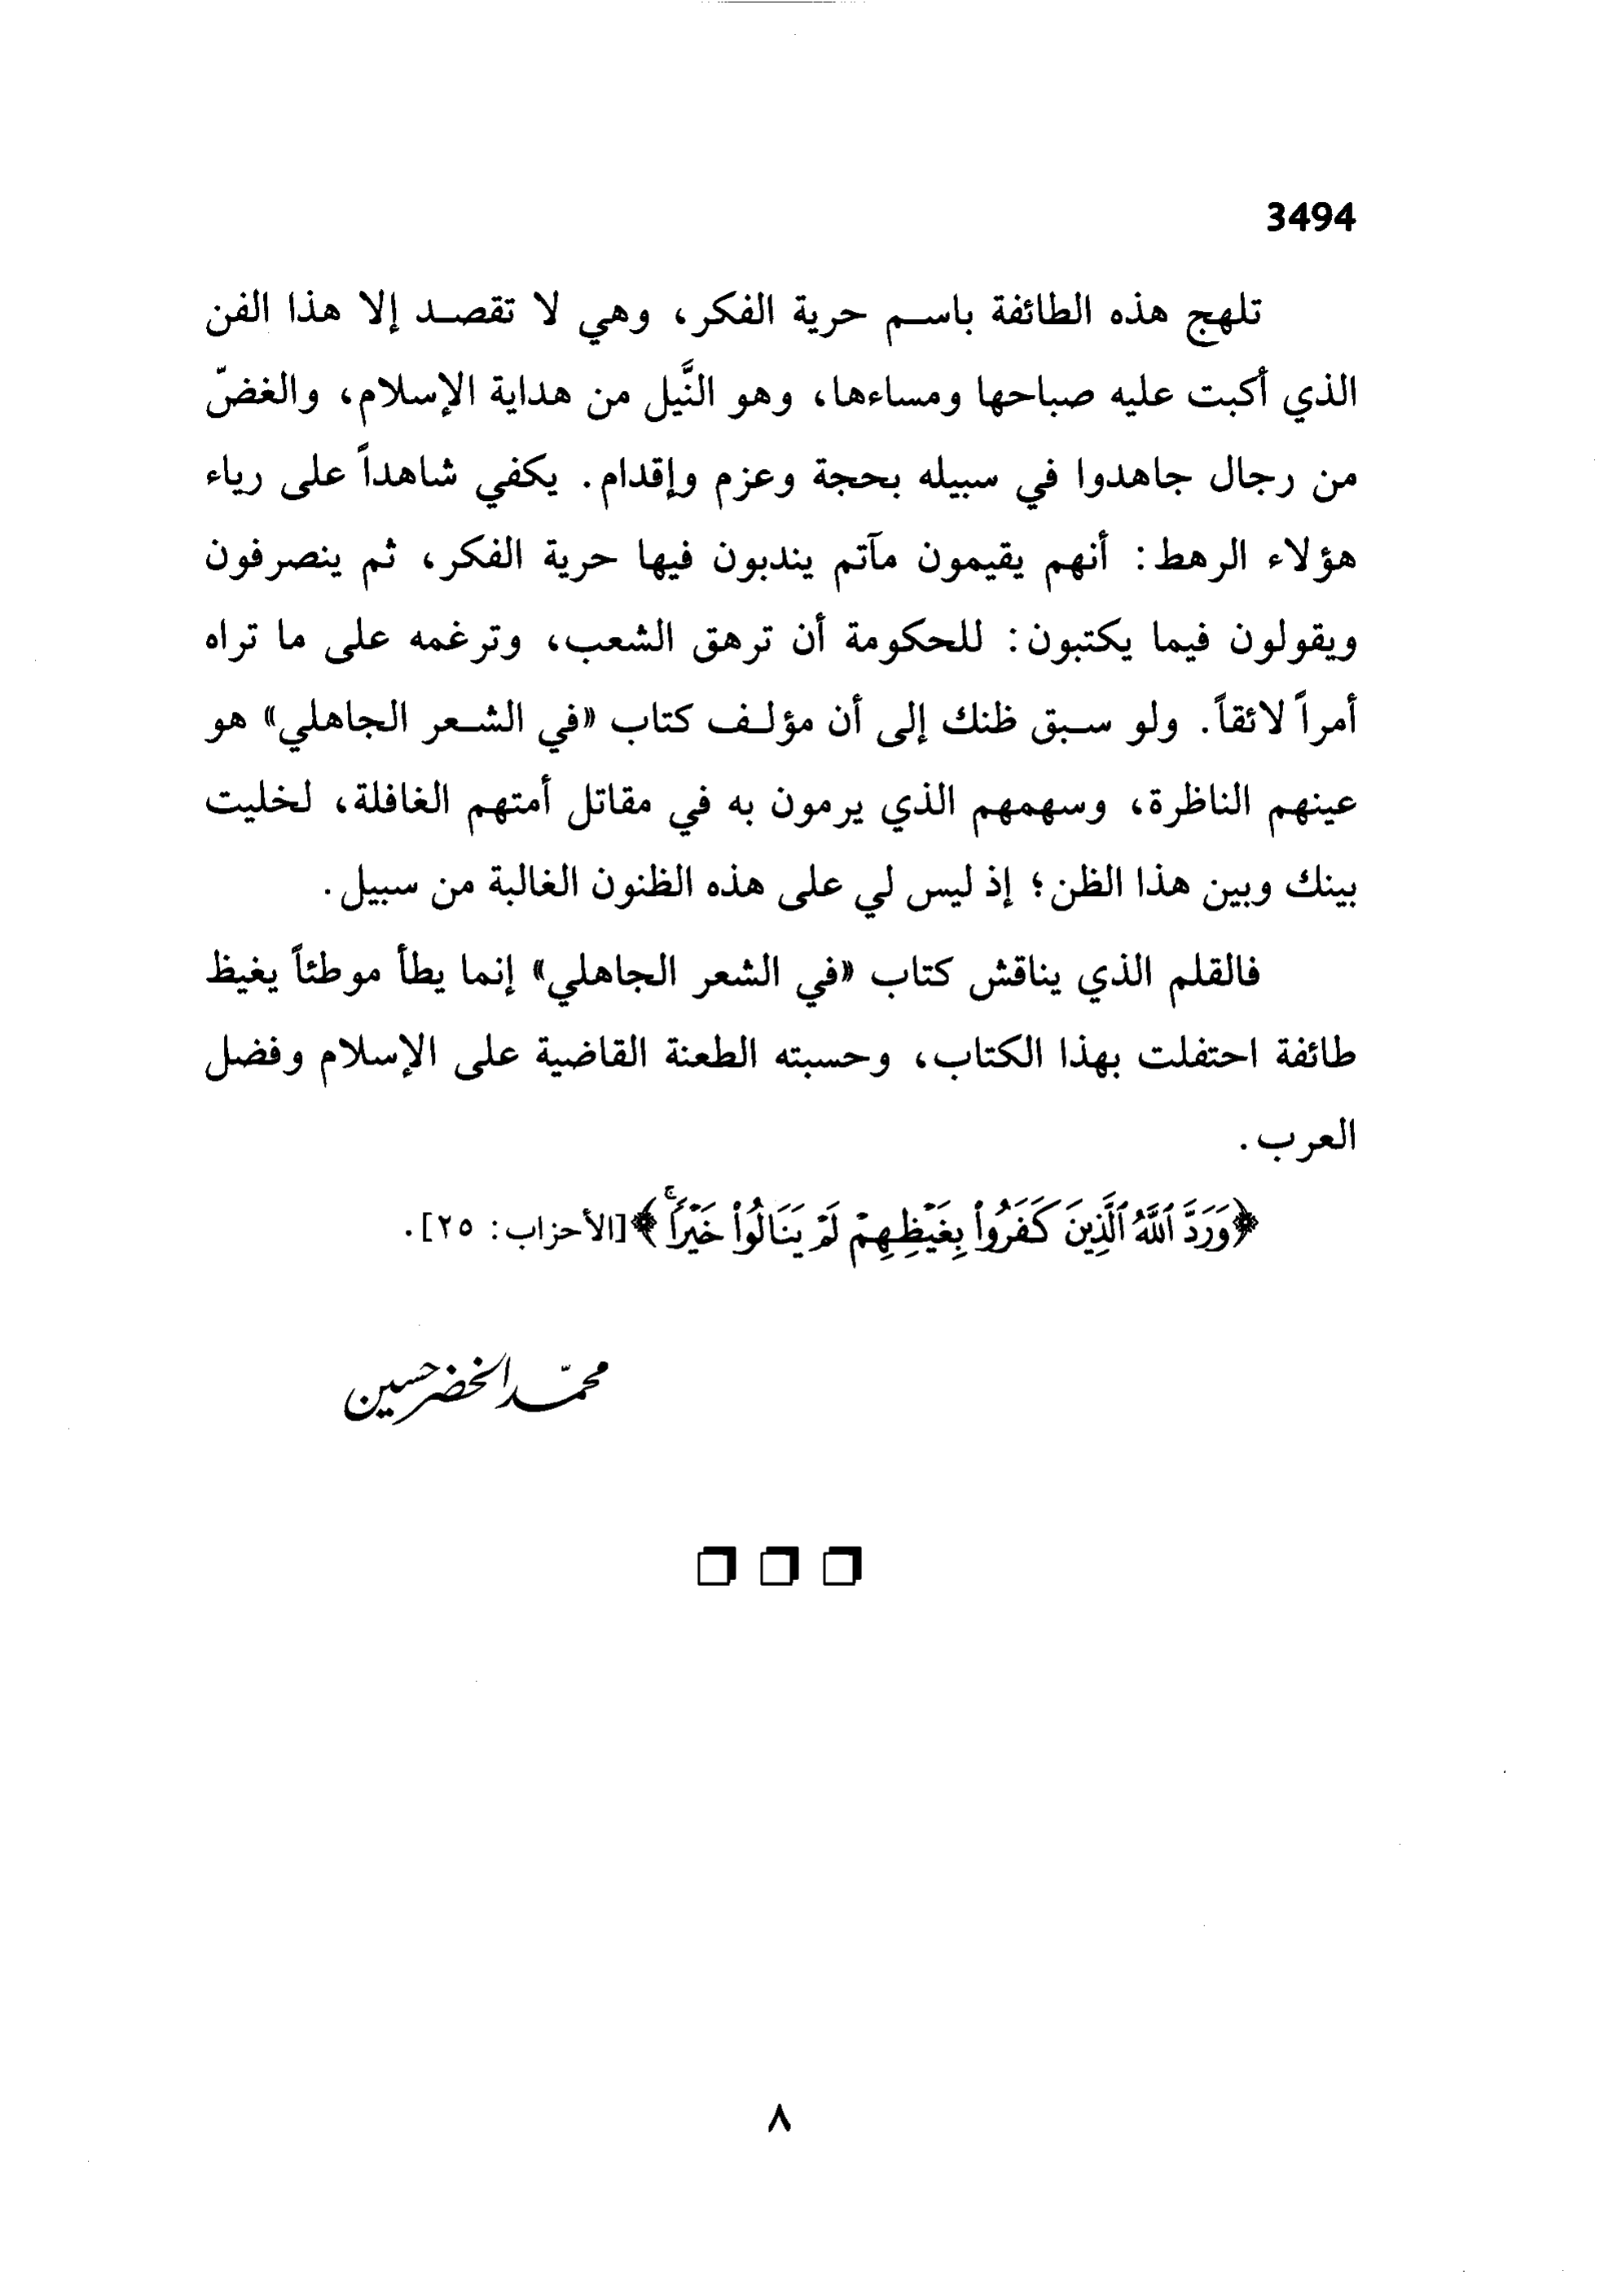 3494
تلهج هذه الطائفة باسم حرية الفكر، وهي لا تقصد إلا هذا الفن
الذي أكبت عليه صباحها ومساءها، وهو النَّيل من هداية الإسلام، والغضّ
من رجال جاهدوا في سبيله بحجة وعزم وإقدام. يكفي شاهداً على رياء
هؤلاء الرهط: أنهم يقيمون مآتم يندبون فيها حرية الفكر، ثم ينصرفون
ويقولون فيما يكتبون: للحكومة أن ترهق الشعب، وترغمه على ما تراه
أمراً لائقاً. ولو سبق ظنك إلى أن مؤلف كتاب «في الشعر الجاهلي» هو
عينهم الناظرة، وسهمهم الذي يرمون به في مقاتل أمتهم الغافلة، لخليت
بينك وبين هذا الظن؛ إذ ليس لي على هذه الظنون الغالبة من سبيل.
فالقلم الذي يناقش كتاب «في الشعر الجاهلي» إنما يطأ موطئاً يغيظ
طائفة احتفلت بهذا الكتاب، وحسبته الطعنة القاضية على الإسلام وفضل
العرب.
﴿وَرَدَّ ٱللَّهُ ٱلَّذِينَ كَفَرُواْ بِغَيْظِهِمْ لَمْ يَنَالُواْ خَيْرًاۚ﴾ [الأحزاب: ٢٥].
محمّد الخضر حسين
٨